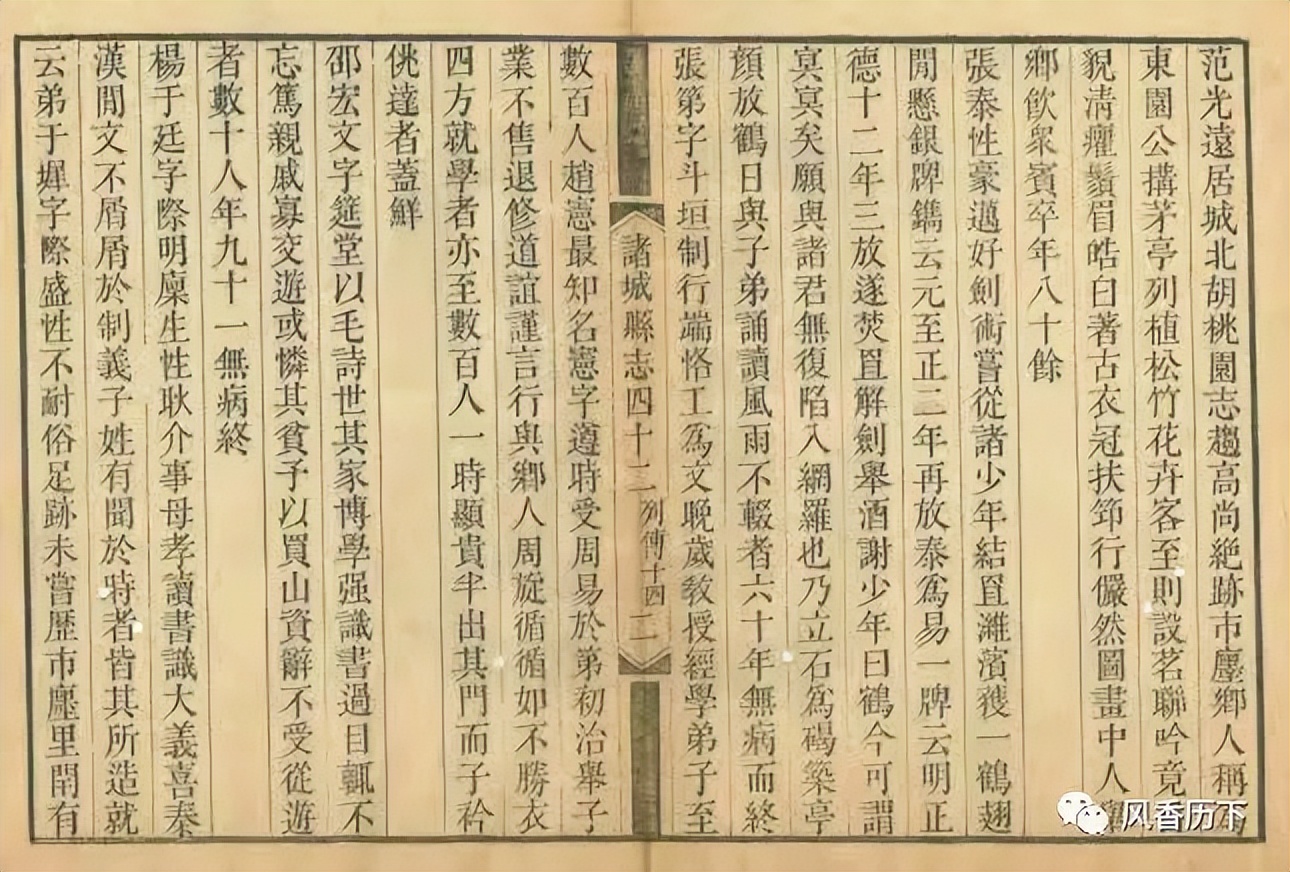 范光遠居城北胡桃園志趨高尚絶跡市廛鄉人稱爲
東園公搆茅亭列植松竹花卉客至則設茗聯吟竟
貌淸癯鬚眉皓白著古衣冠扶筇行儼然圖畫中人
鄉飲衆賓卒年八十餘
張泰性豪邁好劍術嘗從諸少年結罝濰濱獲一鶴翅
閒懸銀牌鐫云元至正二年再放泰爲易一牌云明正
德十二年三放遂焚罝解劍舉酒謝少年曰鶴今可謂
冥冥矣願與諸君無復陷入網羅也乃立石爲碣築亭
顏放鶴日與子弟誦讀風雨不輟者六十年無病而終
張第字斗垣制行端恪工爲文晚歲教授經學弟子至
諸城縣志四十二 列傳十四 二
數百人趙憲最知名憲字遵時受周易於第初治舉子
業不售退修道誼謹言行與鄉人周旋循循如不勝衣
四方就學者亦至數百人一時顯貴半出其門而子衿
佻達者蓋鮮
邵宏文字筵堂以毛詩世其家博學强識書過目輒不
忘篤親戚寡交遊或憐其貧子以買山資辭不受從遊
者數十人年九十一無病終
楊于廷字際明廩生性耿介事母孝讀書識大義喜秦
漢閒文不屑屑於制義子姓有聞於時者皆其所造就
云弟于墀字際盛性不耐俗足跡未嘗歷市廛里閈有
风香历下